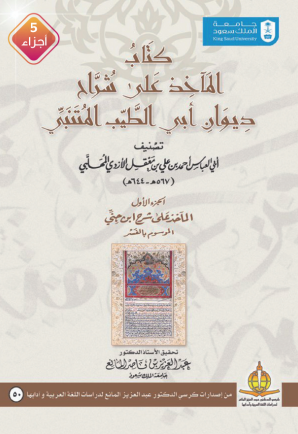 5
أجزاء
جامعة
الملك سعود
King Saud University
كتاب
المآخذ على شراح
ديوان أبي الطيب المتنبي
تصنيف
أبي العباس أحمد بن علي بن معقل الأزدي المهلبي
(٥٦٧هـ - ٦٤٤هـ)
الجزء الأول
المآخذ على شرح ابن جني
الموسوم بالفسر
تحقيق الأستاذ الدكتور
عبد العزيز بن ناصر المانع
جامعة الملك سعود
من إصدارات كرسي الدكتور عبد العزيز المانع لدراسات اللغة العربية وآدابها
٥٠